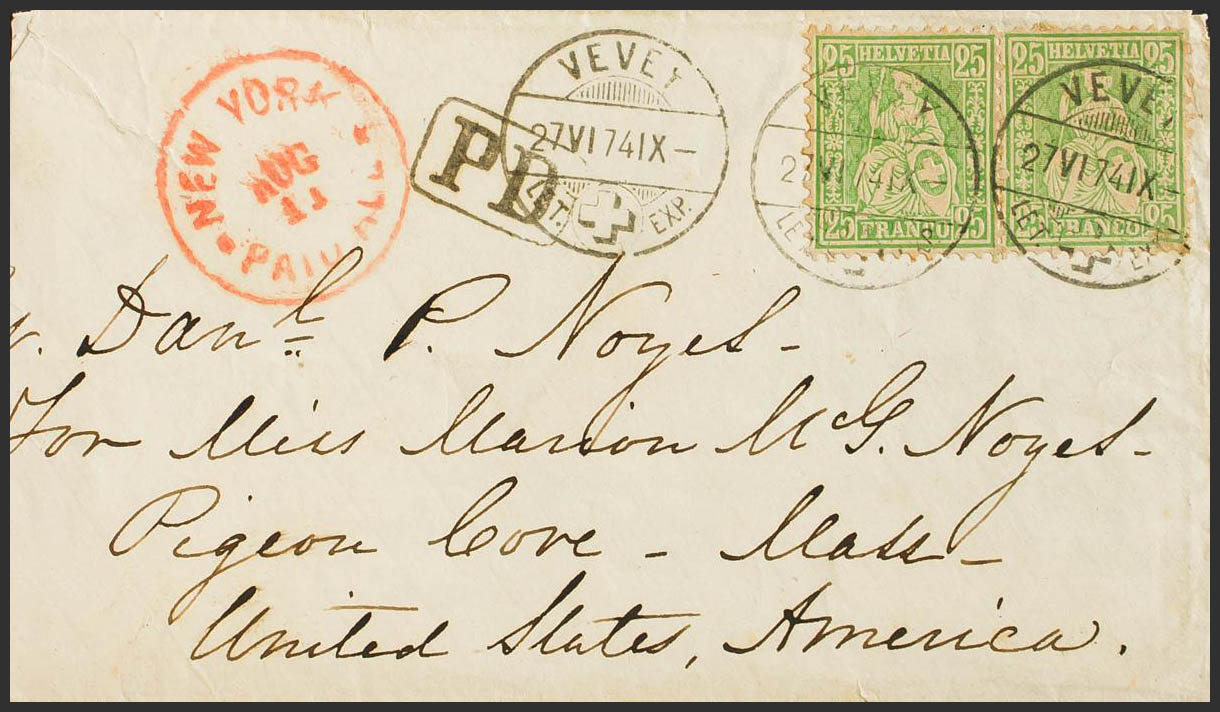 NEW YORK
AUG
11
PAID ALL
PD
VEVEY
27 VI 74 IX –
LET. EXP.
25 HELVETIA 25
25 FRANCO 25
25 HELVETIA 25
FRANCO 25
VEVEY
27 VI 74 IX –
LET. EXP.
Danl. P. Noyes –
For Miss Marion McG. Noyes –
Pigeon Cove – Mass –
United States, America.